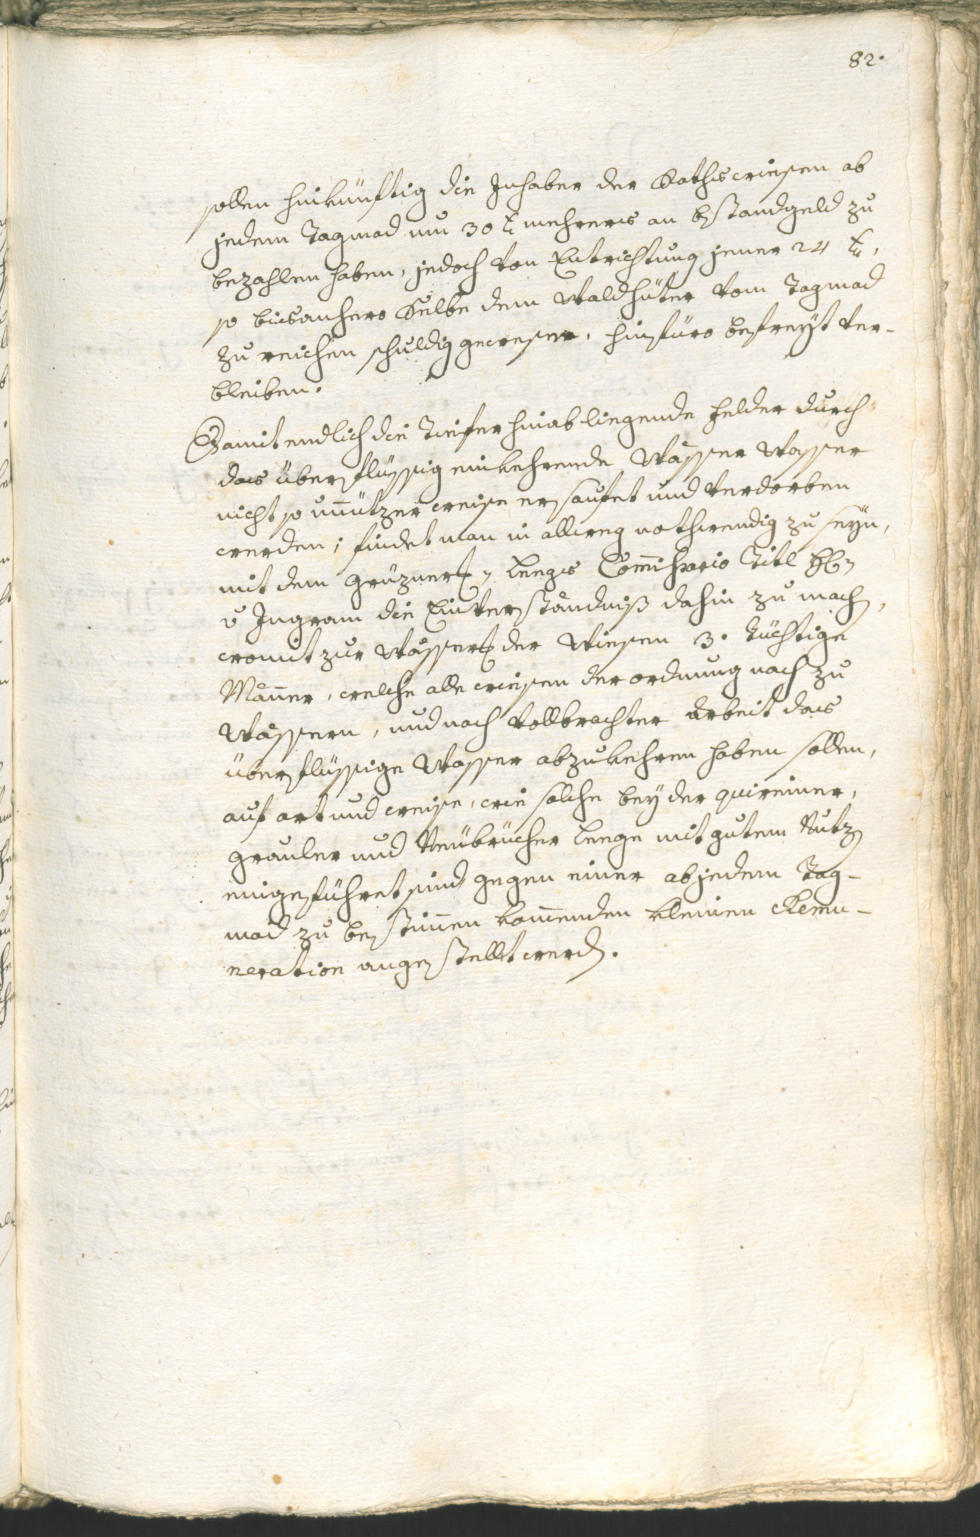 82.
sollen hinkünftig die Inhaber der Rathswiesen ab
jedem Tagmad um 30 xr mehrers an bstandgeld zu
bezahlen haben, jedoch von Entrichtung jener 24 xr,
so bisanhero Selbe dem Waldhüter vom Tagmad
zu reichen schuldig gewesen, hinfüro befreyt ver-
bleiben.
Damit endlich die Tiefer hinab liegende Felder durch
das überflüssig einkehrende Wässer Wasser
nicht so unnützer weise ersaufet und verdorben
werden; findet man in allweg nothwendig zu seyn,
mit dem Grüzner Leegs Commissario Titl H.
v Ingram die Einverständniß dahin zu mach,
womit zur Wässer der Wiesen 3. tüchtige
Männer, welche alle wiesen der ordnung nach zu
Wässern, und nach vollbrachter Arbeit das
überflüssige Wasser abzukehren haben sollen,
auf art und weise, wie solche bey der quireiner,
grauler und Neubrücher Leege mit gutem Nutz
eingeführet sind gegen einer ab jedem Tag-
mad zu bestimmen kommenden kleinen Remu-
neration angestellt werd.